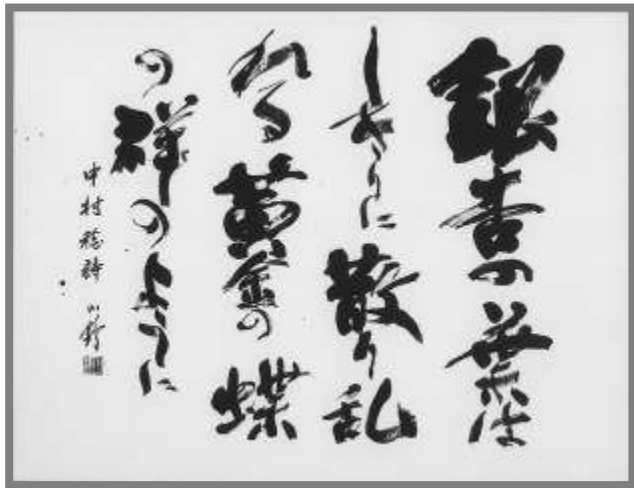 銀杏の葉は
しきりに散り乱
れる黄金の蝶
の群のように
中村稔詩